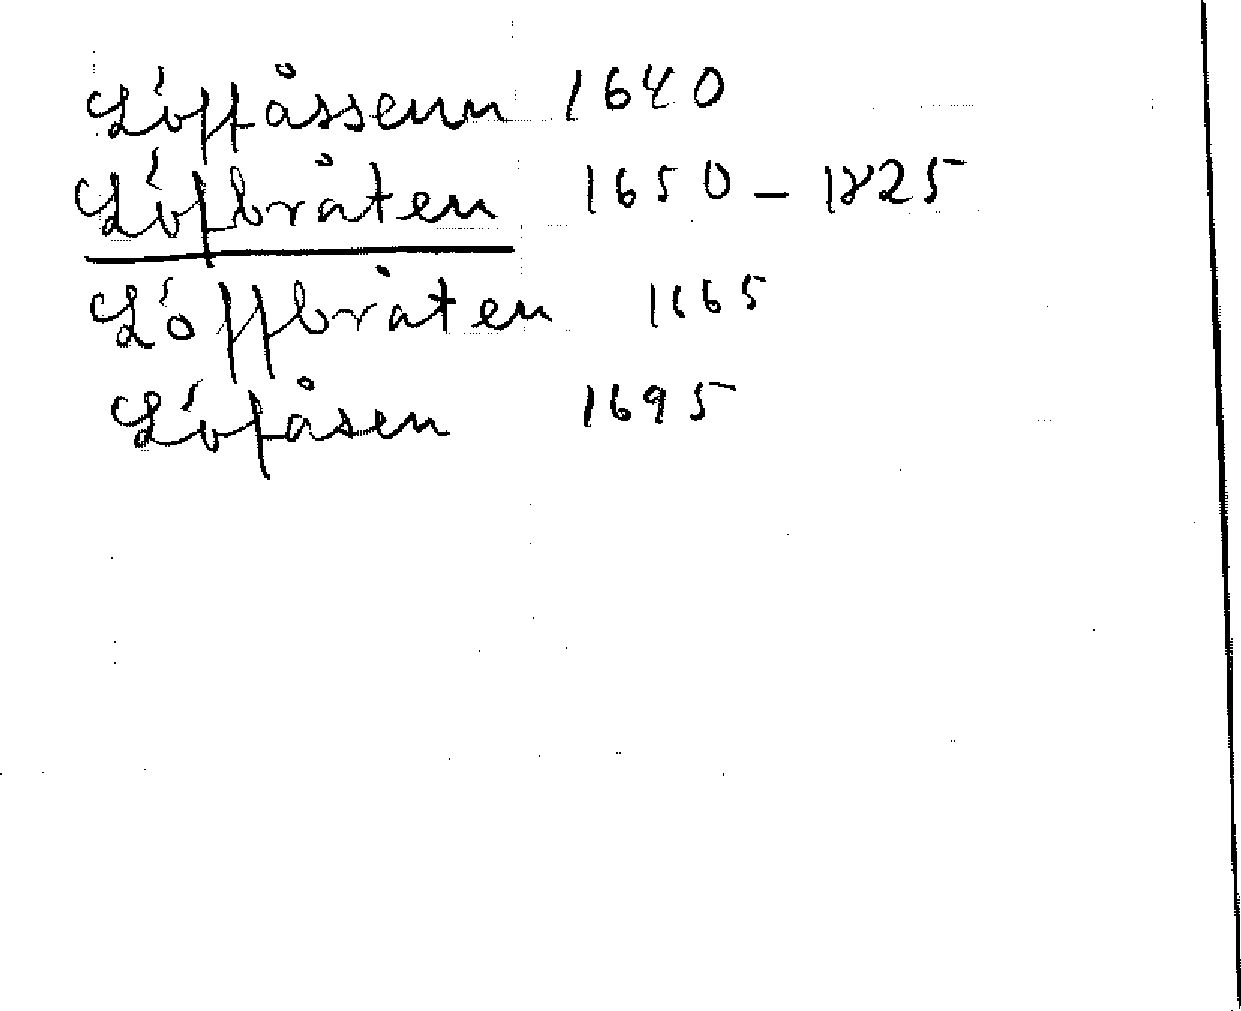 Löffåssenn 1640
Löfbråten 1650 – 1825
Löffbråten 1665
Löfåsen 1695